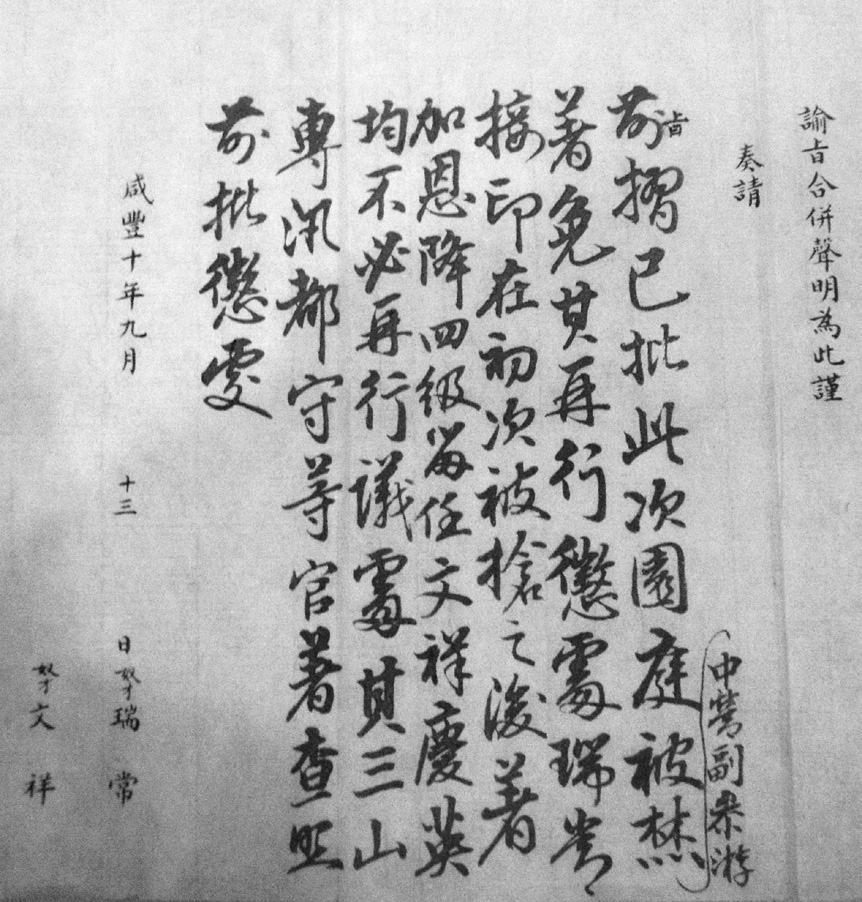 諭旨合併聲明為此謹
奏請
旨
前摺已批此次園庭被焚
中營副參游
著免其再行懲處瑞常
接印在初次被搶之後著
加恩降四級留任文祥慶英
均不必再行議處其三山
專汛都守等官著查照
前批懲處
咸豐十年九月十三日奴才瑞常
奴才文祥